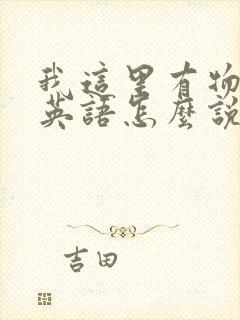 我這里有物
英語怎麼說
吉田